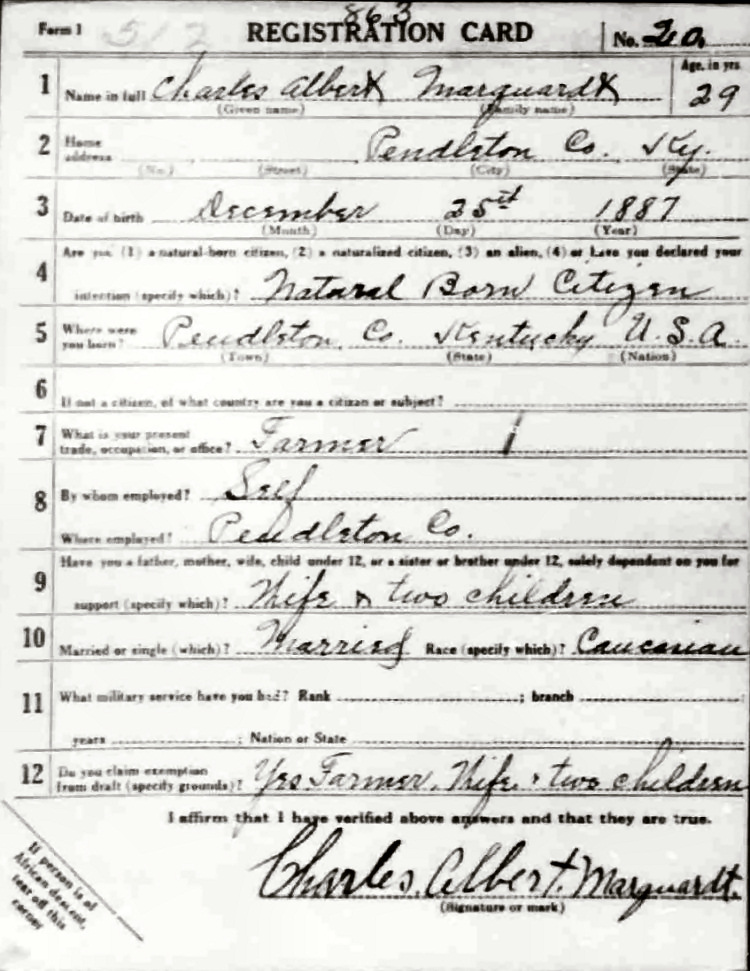 863
Form 1 512 REGISTRATION CARD No. 20
Age, in yrs
1 Name in full Charles Albert Marquardt 29
(Given name) (Family name)
2 Home address Pendleton Co. Ky.
(No.) (Street) (City) (State)
3 Date of birth December 25 1887
(Month) (Day) (Year)
Are you (1) a natural-born citizen, (2) a naturalized citizen, (3) an alien, (4) or have you declared your
4 intention (specify which)? Natural Born Citizen
5 Where were you born? Pendleton Co. Kentucky U.S.A.
(Town) (State) (Nation)
6 If not a citizen, of what country are you a citizen or subject?
7 What is your present trade, occupation, or office? Farmer
8 By whom employed? Self
Where employed? Pendleton Co.
Have you a father, mother, wife, child under 12, or a sister or brother under 12, solely dependent on you for
9 support (specify which)? Wife & two children
10 Married or single (which)? Married Race (specify which)? Caucasian
11 What military service have you had? Rank ; branch
years ; Nation or State
12 Do you claim exemption from draft (specify grounds)? Yes Farmer, Wife & two children
I affirm that I have verified above answers and that they are true.
Charles Albert Marquardt.
(Signature or mark)
If person is of
African descent,
tear off this
corner